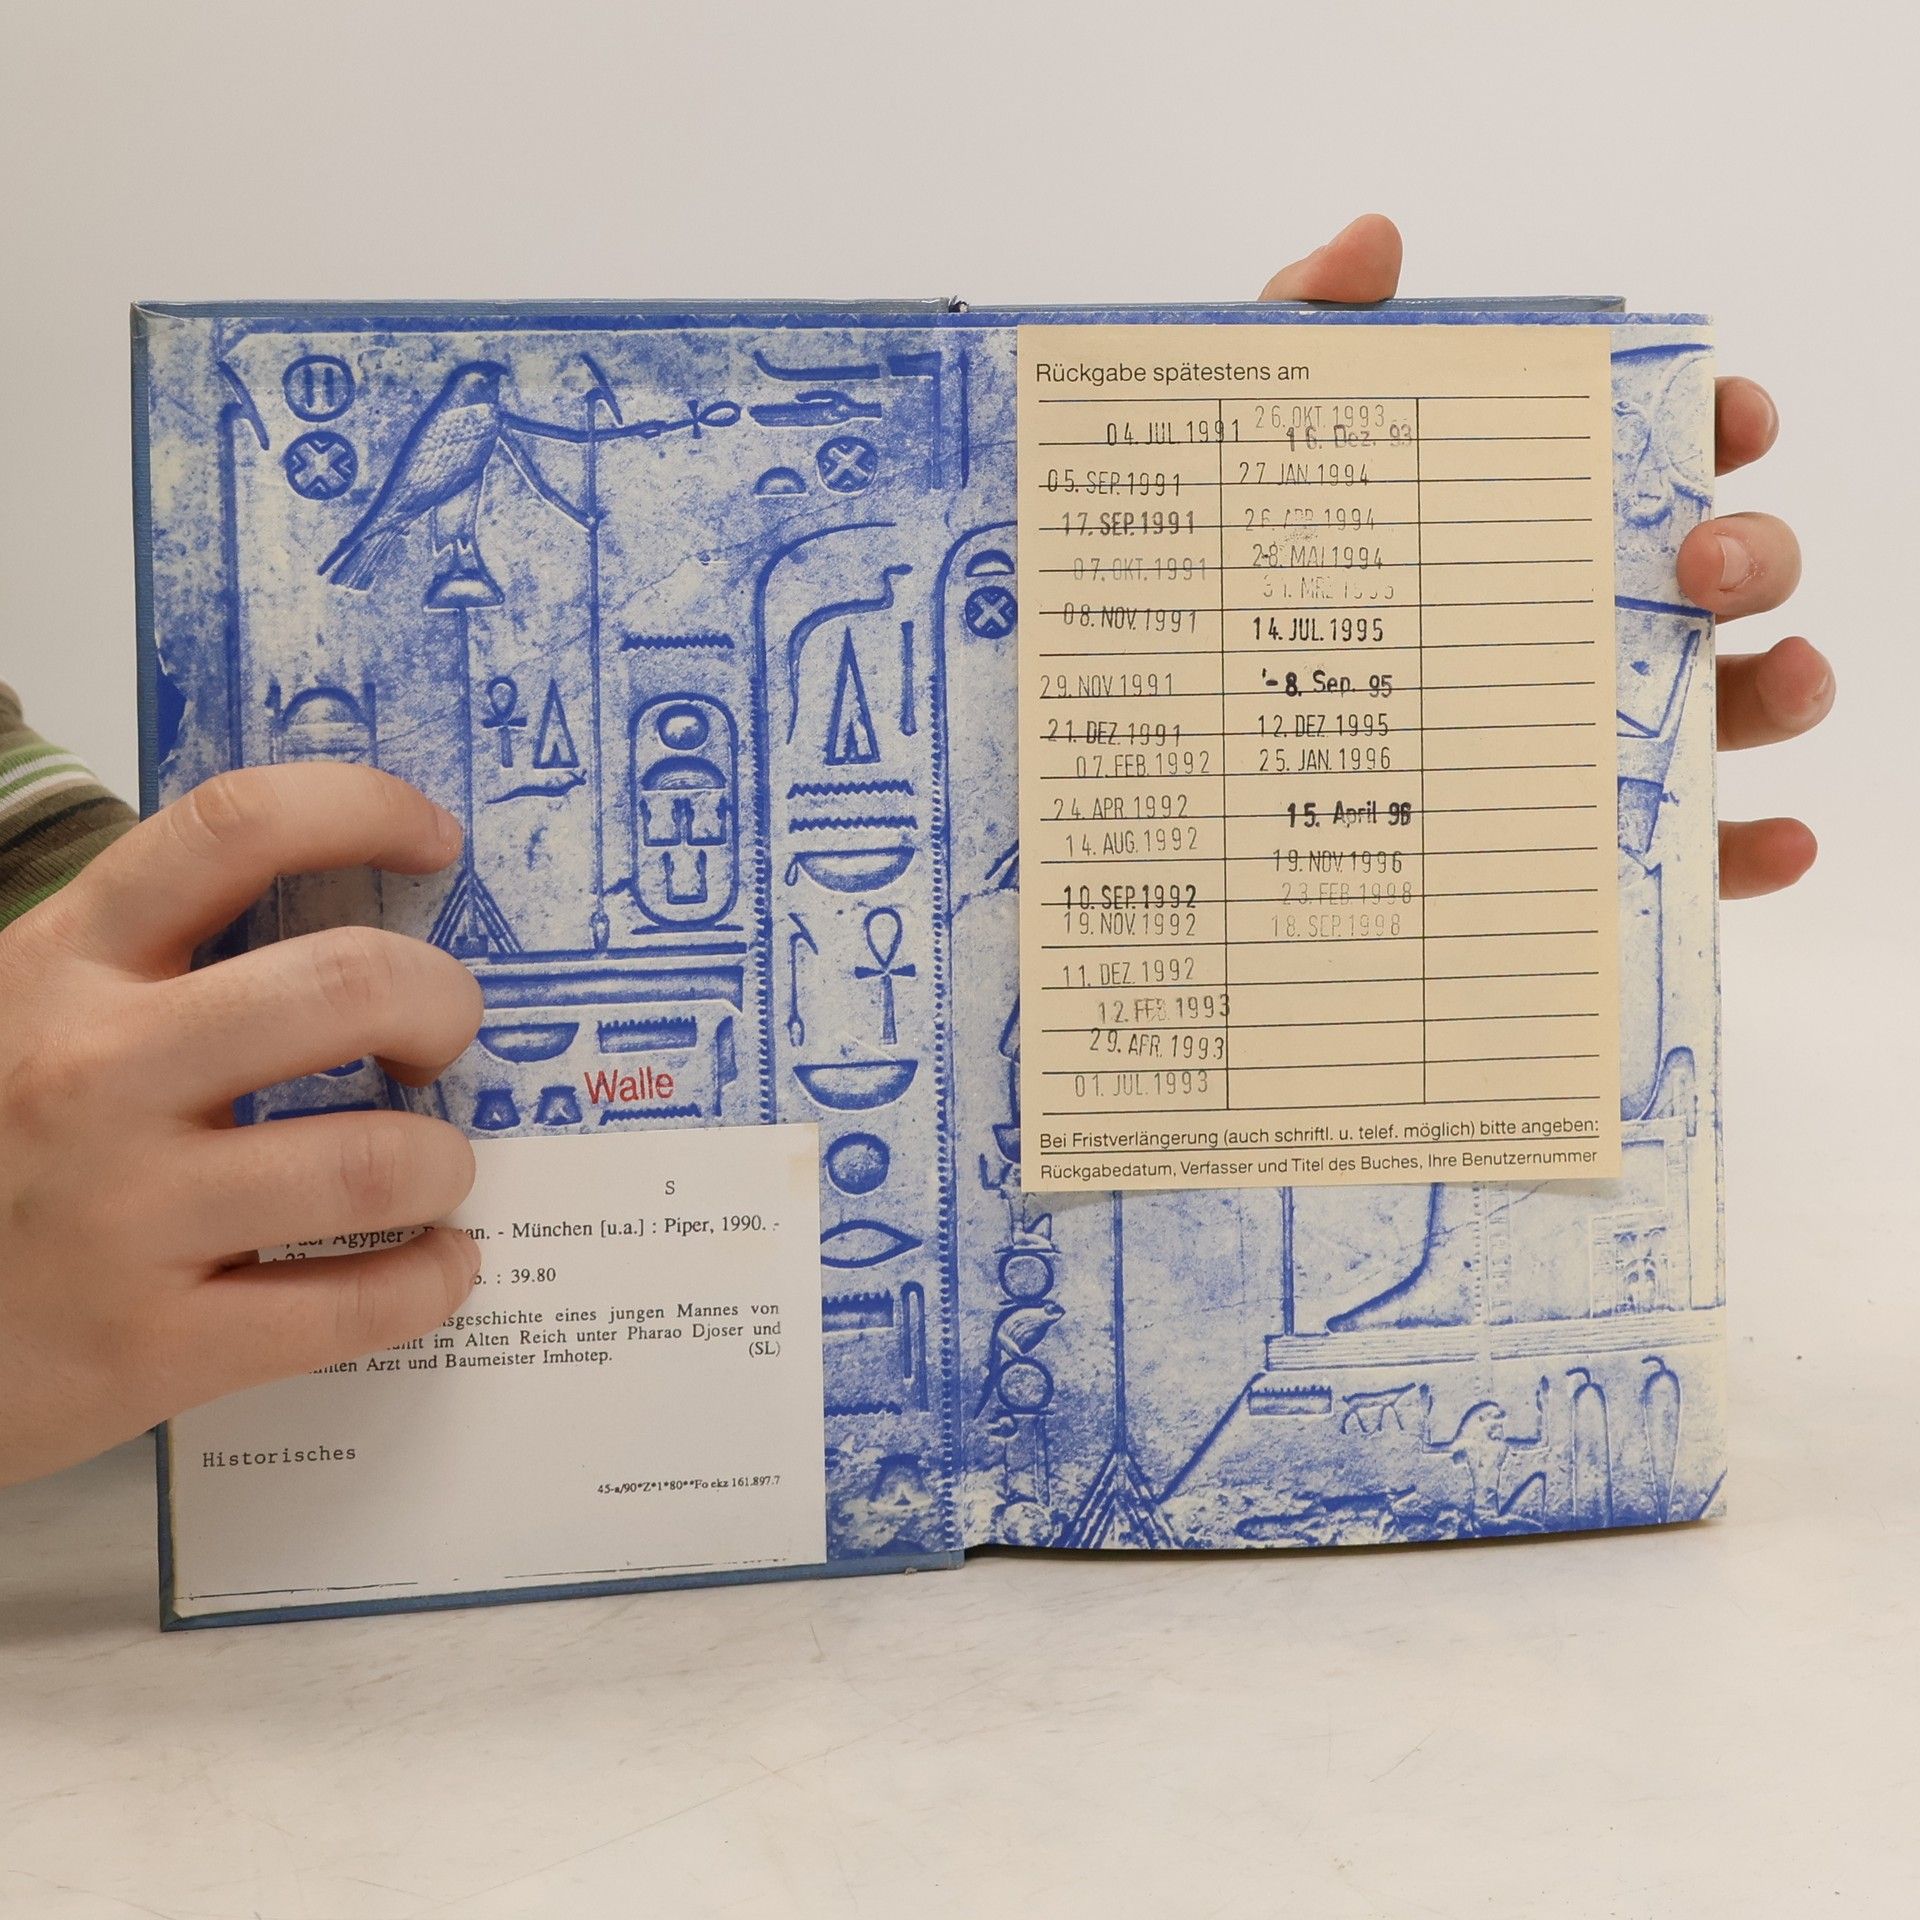 Walle
S
Ägypter : Roman. - München [u.a.] : Piper, 1990. -
: 39.80
sgeschichte eines jungen Mannes von
im Alten Reich unter Pharao Djoser und
Arzt und Baumeister Imhotep. (SL)
Historisches
45-a/90*Z*1*80**Fo ekz 161.897.7
Rückgabe spätestens am
04. JUL. 1991
05. SEP. 1991
17. SEP. 1991
07. OKT. 1991
08. NOV. 1991
29. NOV 1991
21. DEZ. 1991
07. FEB. 1992
24. APR 1992
14. AUG. 1992
10. SEP. 1992
19. NOV. 1992
11. DEZ. 1992
12. FEB. 1993
29. APR. 1993
01. JUL. 1993
26. OKT. 1993
16. Dez. 93
27 JAN. 1994
26. APR 1994
28. MAI 1994
14. JUL. 1995
- 8. Sep. 95
12. DEZ 1995
25. JAN. 1996
15. April 96
19. NOV. 1996
23. FEB. 1998
18. SEP. 1998
Bei Fristverlängerung (auch schriftl. u. telef. möglich) bitte angeben:
Rückgabedatum, Verfasser und Titel des Buches, Ihre Benutzernummer